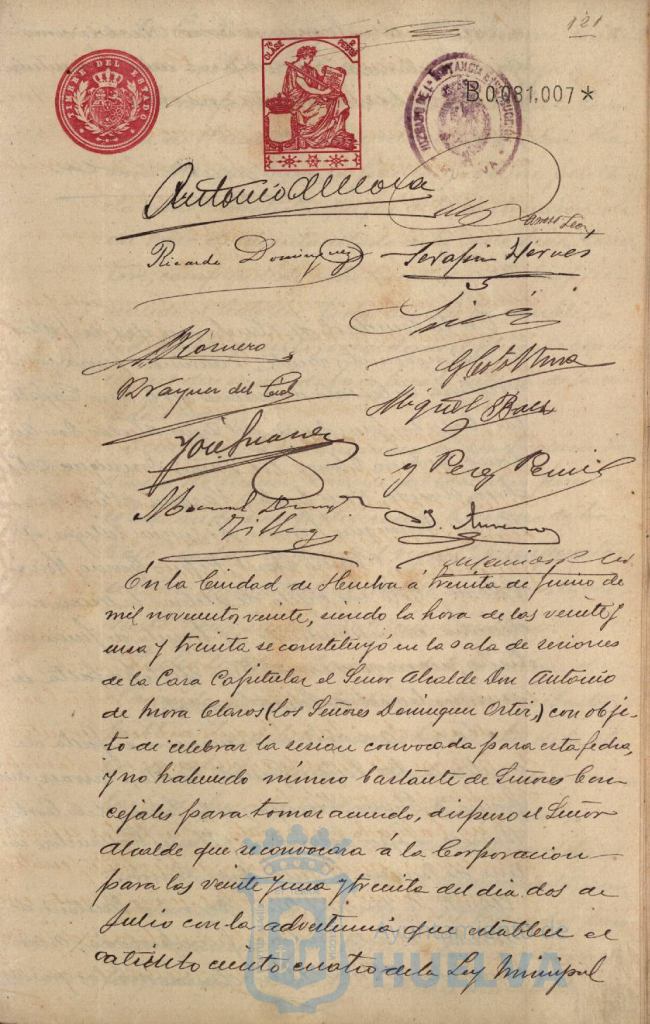 121
TIMBRE DEL ESTADO
7ª CLASE 2 PESETAS
JUZGADO DE 1ª INSTANCIA E INSTRUCCION
HUELVA
B.0.081,007*
Antonio de Mora
Ricardo Dominguez
Serafin
Romero
Vazquez del Cid
Miguel Baez
José Suarez
y Perez
Manuel
En la Ciudad de Huelva á treinta de Junio de
mil novecientos veinte, siendo la hora de las veinte y
una y treinta se constituyó en la sala de sesiones
de la Casa Capitular el Señor Alcalde Don Antonio
de Mora Claros (los Señores Dominguez Ortiz,) con obje-
to de celebrar la sesion convocada para esta fecha,
y no habiendo número bastante de Señores Con-
cejales para tomar acuerdo, dispuso el Señor
Alcalde que se convocara á la Corporacion
para las veinte y una y treinta del dia dos de
Julio con la advertencia que establece el
articulo ciento cuatro de la Ley Municipal
Ayuntamiento de
HUELVA